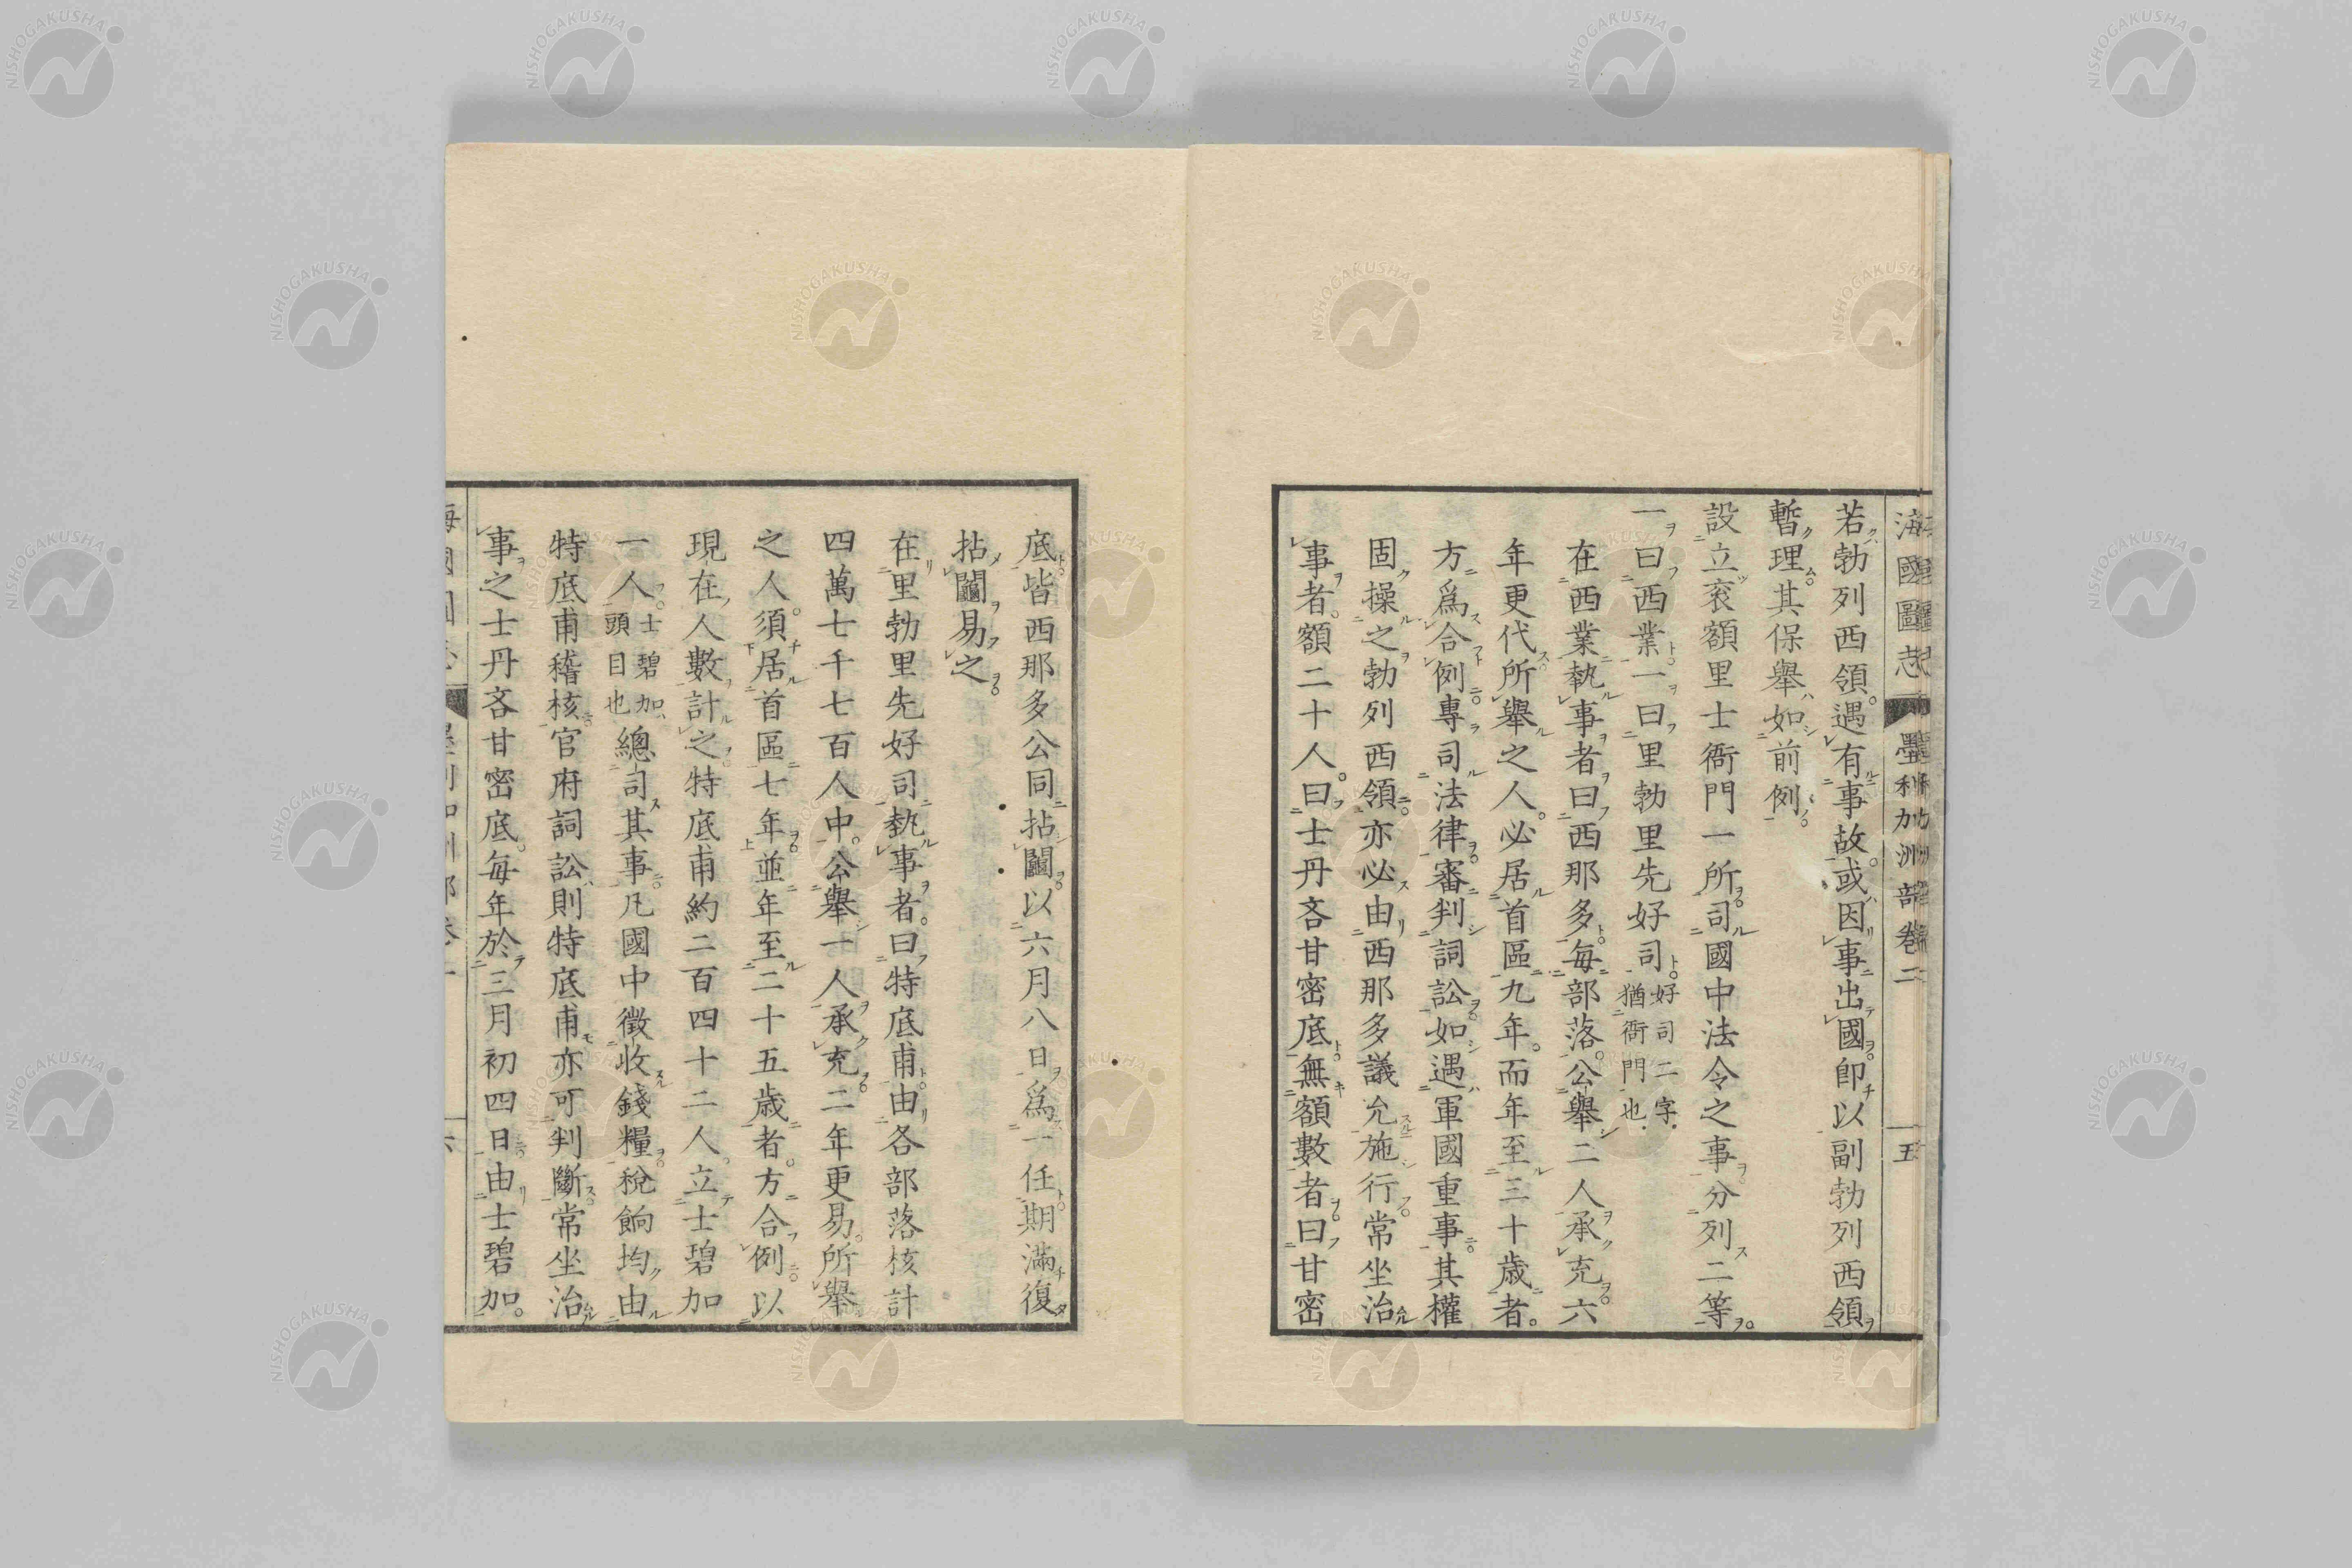 海國圖志 墨利加洲部卷二 五
若勃列西領。遇有事故。或因事出國。卽以副勃列西領
暫理。其保舉如前例。
設立袞額里士衙門一所。司國中法令之事。分列二等。
一曰西業。一曰里勃里先好司。好司二字。猶衙門也。
在西業執事者。曰西那多。每部落。公舉二人承充。六
年更代。所舉之人。必居首區九年。而年至三十歲者。
方爲合例。專司法律。審判詞訟。如遇軍國重事。其權
固操之勃列西領。亦必由西那多議允施行。常坐治
事者。額二十人。曰士丹吝甘密底。無額數者。曰甘密
底。皆西那多公同拈鬮。以六月八日爲一任。期滿復
拈鬮易之。
在里勃里先好司執事者。曰特底甫。由各部落核計
四萬七千七百人中。公舉一人承充。二年更易。所舉
之人。須居首區七年。並年至二十五歲者。方合例。以
現在人數計之。特底甫約二百四十二人。立士碧加
一人。士碧加。頭目也 總司其事。凡國中徵收錢糧。稅餉。均由
特底甫稽核。官府詞訟。則特底甫亦可判斷。常坐治
事之士丹吝甘密底。每年於三月初四日。由士碧加。
NISHOGAKUSHA